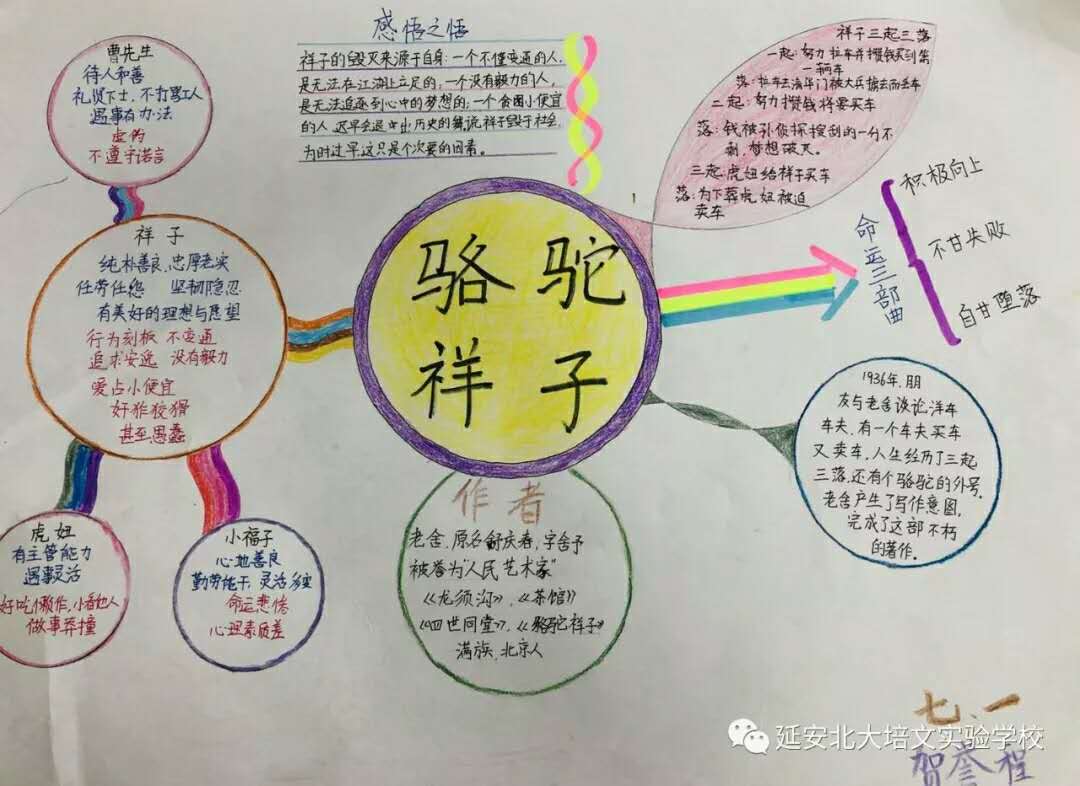 感悟之悟
祥子的毁灭来源于自身:一个不懂变通的人,
是无法在江湖上立足的,一个没有毅力的人,
是无法追逐到心中的梦想的;一个贪图小便宜
的人,迟早会退出历史的舞
祥子毁于社会
为时过早,这只是个次要的因素。
祥子三起三落
一起:努力拉车并攒钱买到第
一辆车
落:拉车去清华门被大兵掳去而丢车
二起:努力攒钱将要买车
落:钱被孙侦探搜刮的一分不
剩,梦想破灭。
三起:虎妞给祥子买车
落:为下葬虎妞被迫
卖车
曹先生
待人和善
礼贤下士,不打骂工人
遇事有办法
虚伪
不遵守诺言
祥子
纯朴善良,忠厚老实
任劳任怨 坚韧隐忍
有美好的理想与愿望
行为刻板 不变通
追求安逸 没有毅力
爱占小便宜
奸诈狡猾
甚至愚蠢
骆驼
祥子
命运三部曲
积极向上
不甘失败
自甘堕落
1936年,朋
友与老舍谈论洋车
车夫,有一个车夫买车
又卖车,人生经历了三起
三落,还有个骆驼的外号,
老舍产生了写作意图,
完成了这部不朽
的著作。
虎妞
有主管能力
遇事灵活
好吃懒作,小看他人
做事莽撞
小福子
心地善良
勤劳能干,灵活多变
命运悲惨
心理素质差
作者
老舍,原名舒庆春,字舍予
被誉为“人民艺术家”
《龙须沟》,《茶馆》
《四世同堂》,《骆驼祥子》
满族,北京人
七、一
延安北大培文实验学校
贺誉程